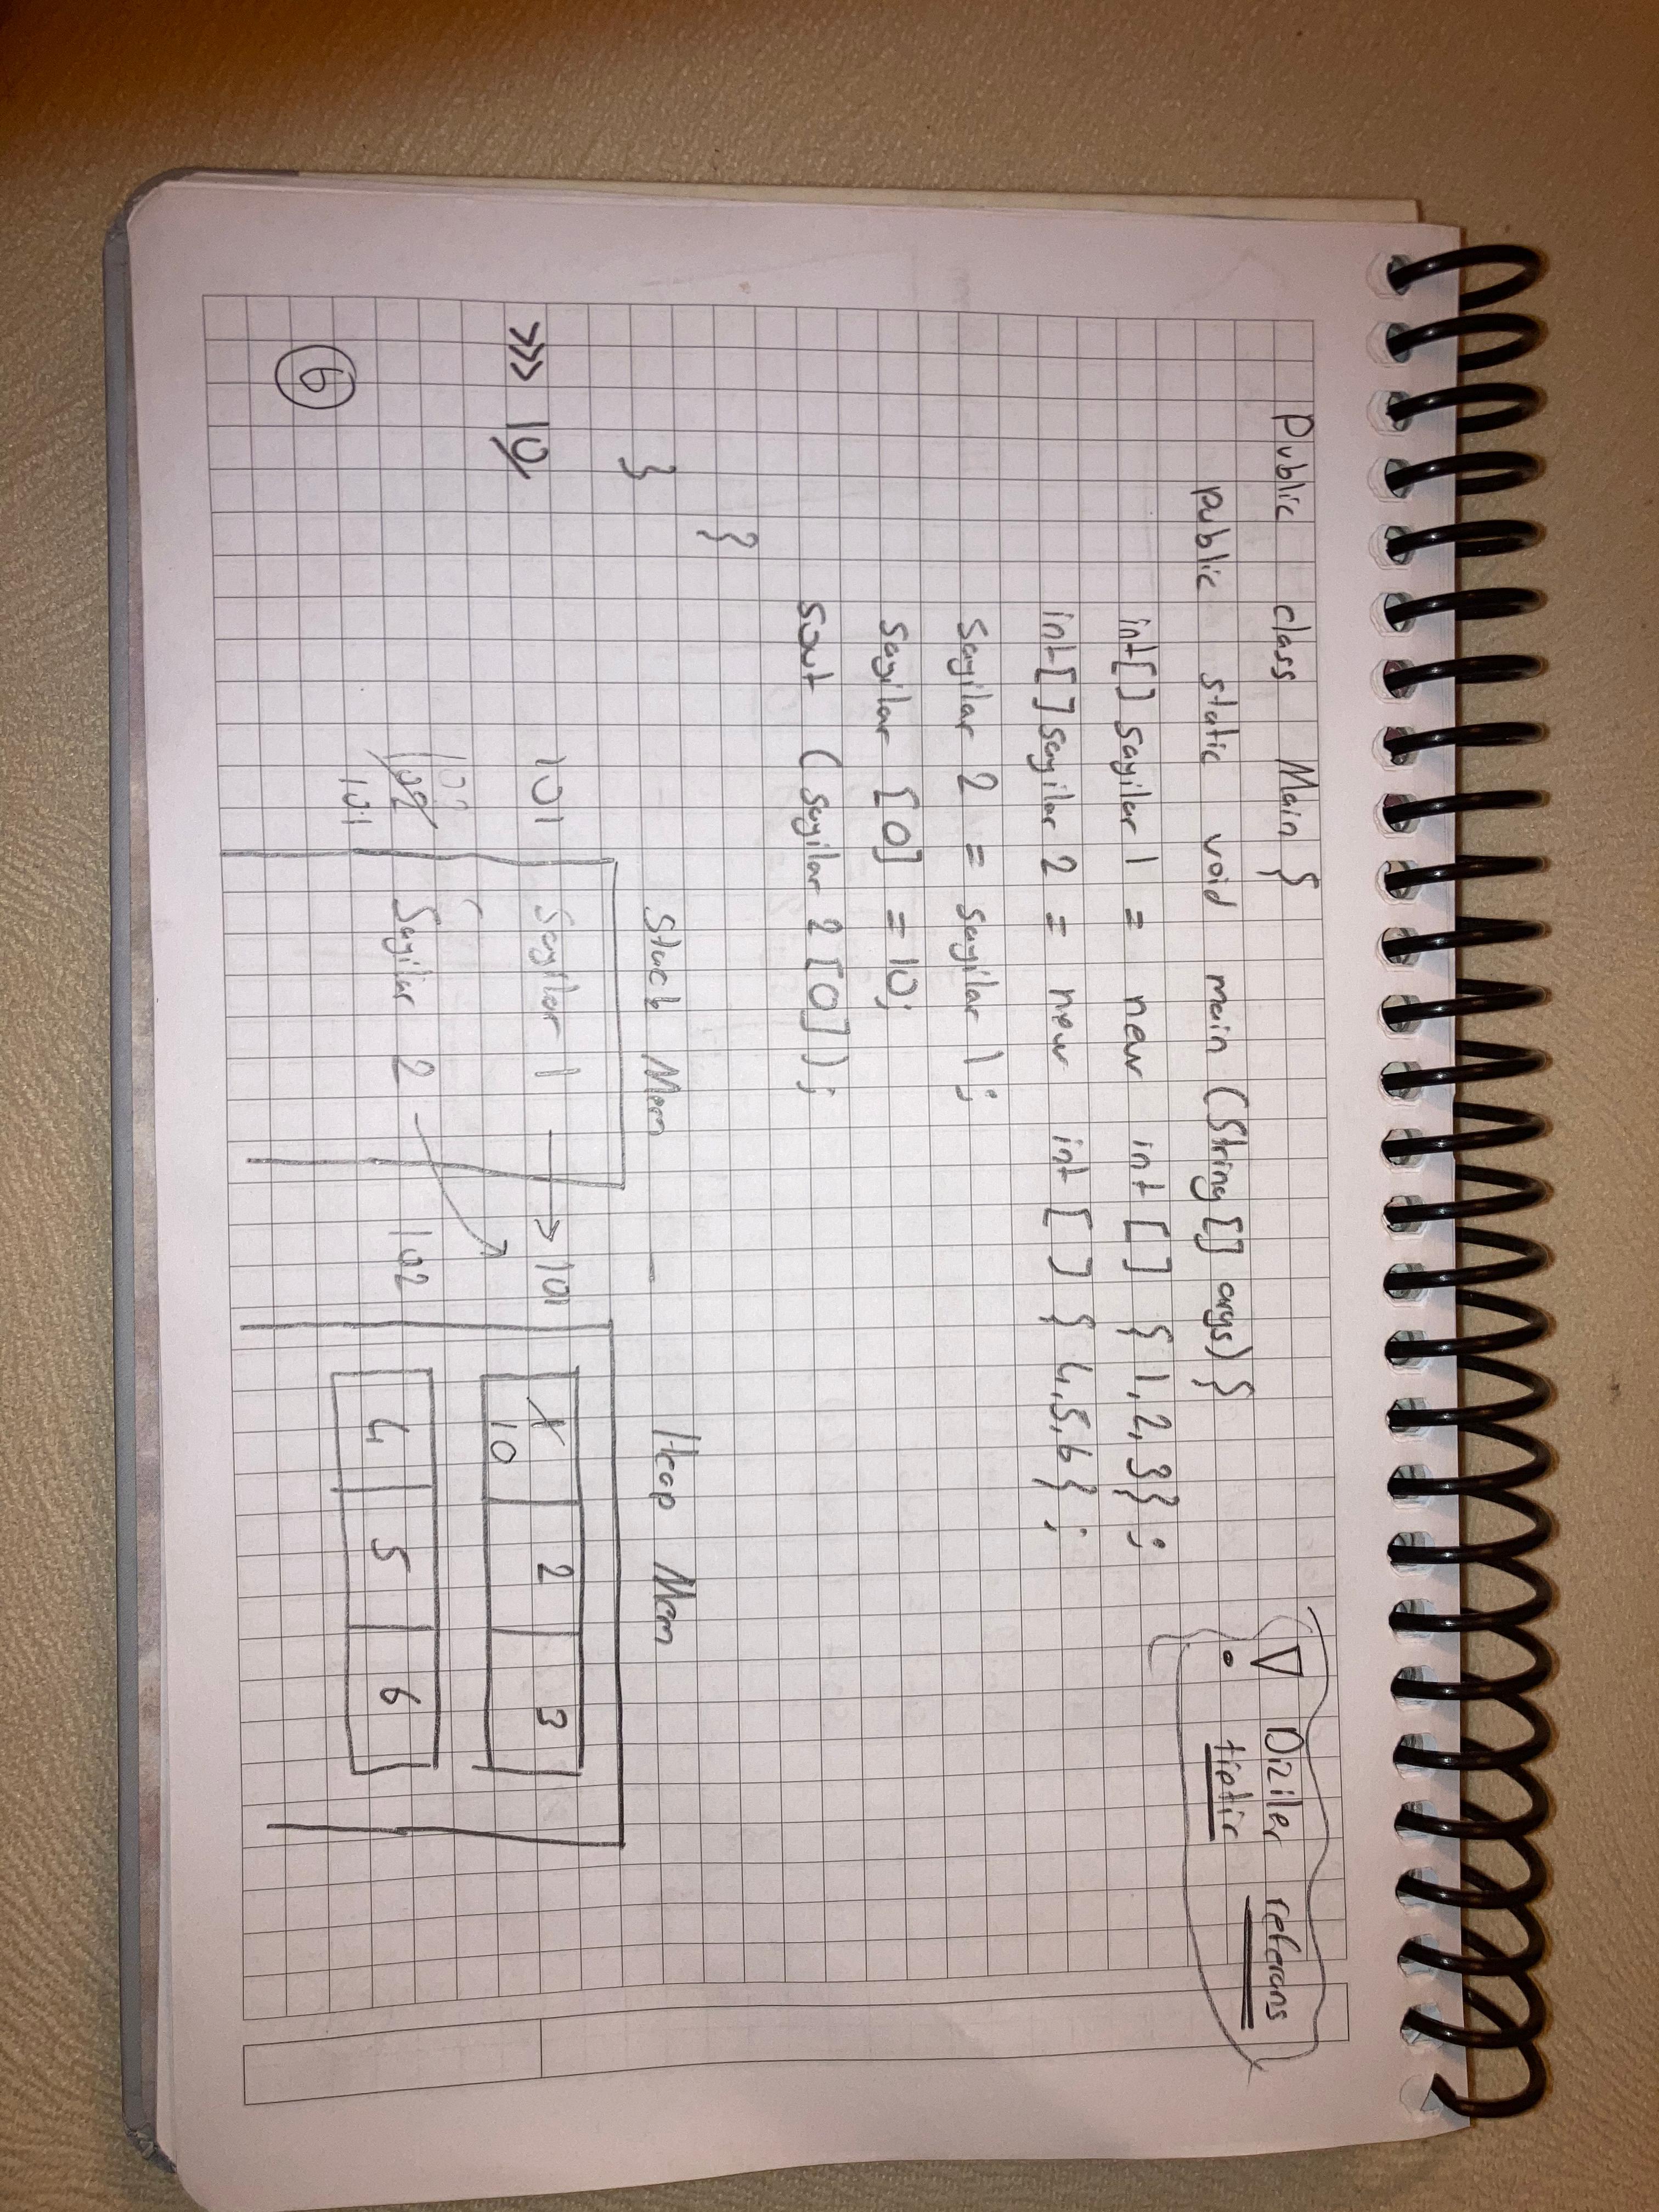 Public class Main {
public static void main (String [] args) {
int[] sayilar 1 = new int [] { 1, 2, 3 } ;
int[] sayilar 2 = new int [] { 4, 5, 6 } ;
sayilar 2 = sayilar 1 ;
sayilar [0] = 10;
sout ( sayilar 2 [0] ) ;
}
}
Diziler referans
tiptir
Stack Mem - Heap Mem
>>> 10
101 Sayilar 1 → 101 1 2 3
10
102
102 Sayilar 2 102 4 5 6
101
6